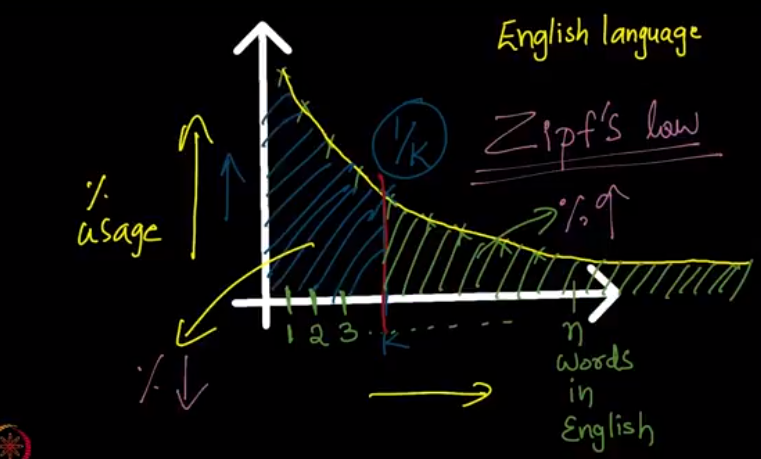 English language
Zipf's law
1/K
%↑
%
usage
1 2 3 ........ n
K
words
in
English
% ↓